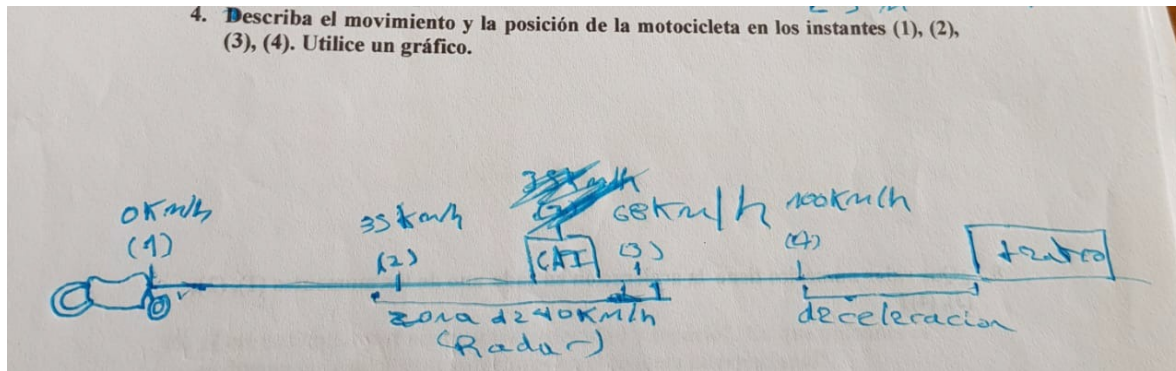 4. Describa el movimiento y la posición de la motocicleta en los instantes (1), (2),
(3), (4). Utilice un gráfico.
0Km/h
35 km/h
68Km/h
100km/h
(1)
(2)
CAI
(3)
(4)
teatro
zona de 40Km/h
(Radar)
deceleracion